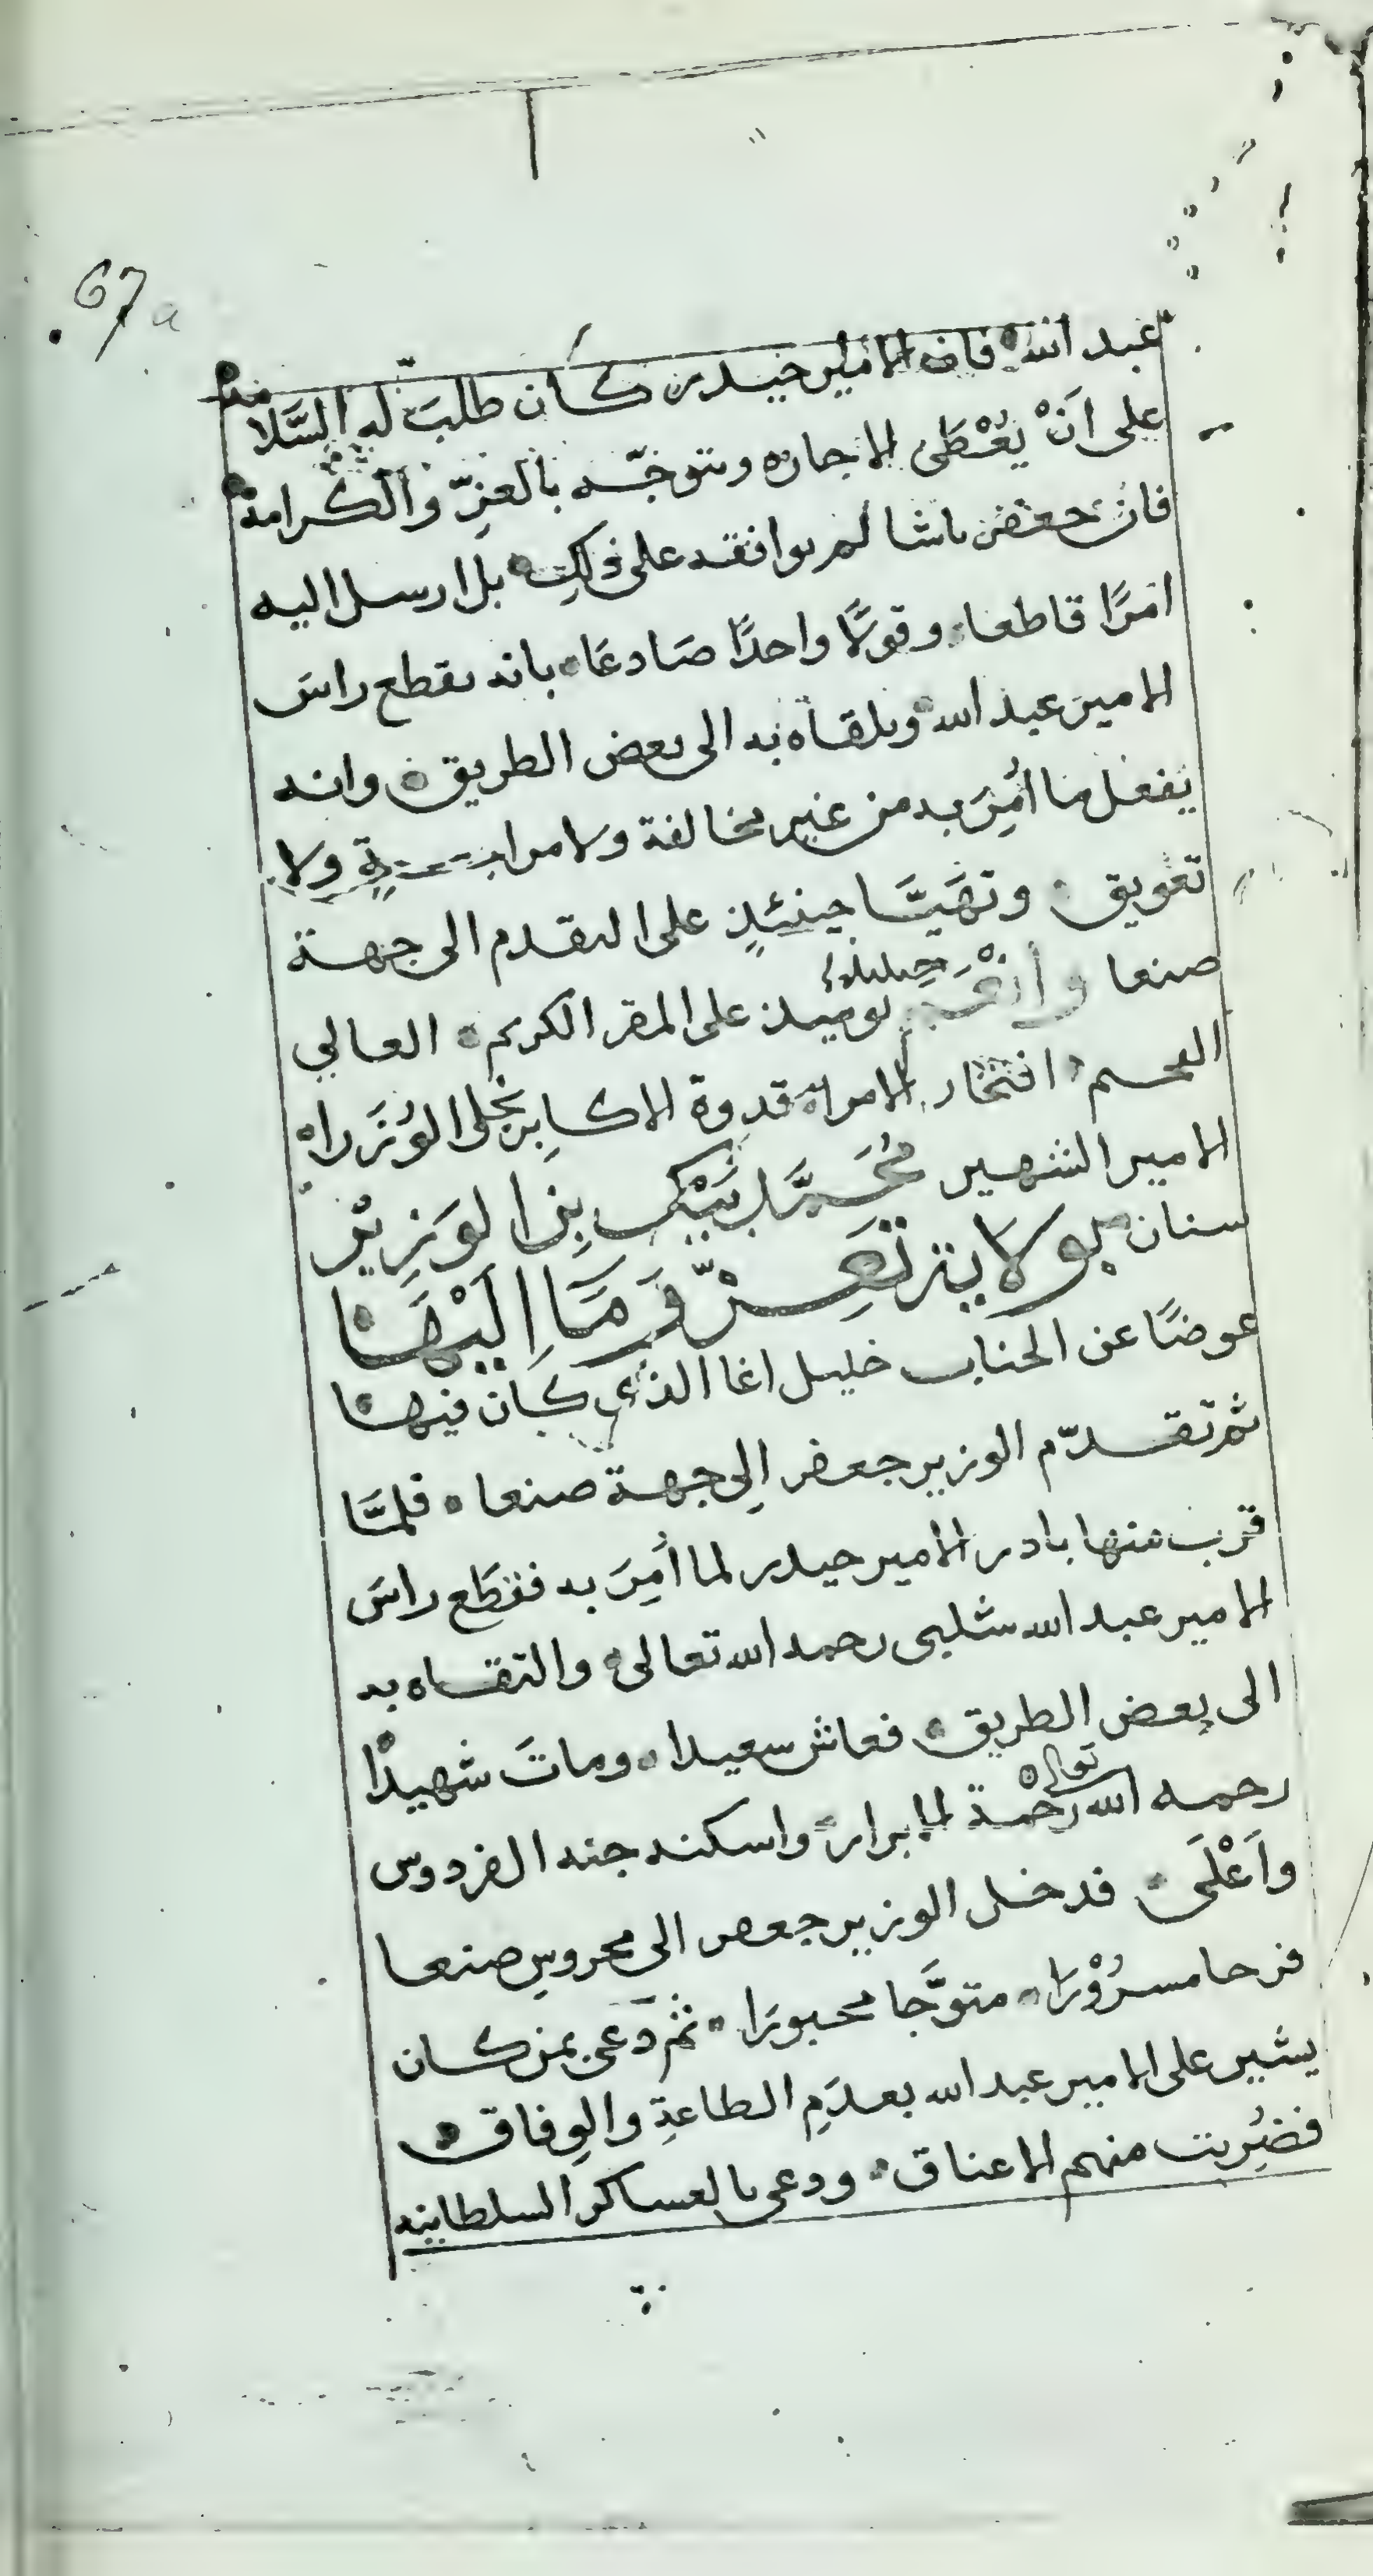 67a
عبد الله فان الامير حيدر كان طلب له السَّلامة
على اَنْ يُعْطَى الاجازه ويتوجّه بالعِزّ والكرامة
فان جعفر باشا لم يوافقه على ذلكِ بل ارسل اليه
امرًا قاطعا وقولًا واحدًا صَادعَا بانه يقطع راسَ
الامير عبد الله ويلقاه به الى بعض الطريق وانه
يفعل ما اُمِرَ به من غير مخالفة ولا مراجعة ولا
تعويق وتهَيَّا حينئذٍ على التقدم الى جهة
صنعا وأنْعَم يوميذ على المقر الكريم العالي
افتخار الامراء قدوة الاكابِر نجلى الوُزَراء
الامير الشهير مُحَمَّد بَيْك بِن الوَزِيْر
سنان بولاية تَعِزّ وَمَا اِلَيْهَا
عوضًا عن الجناب خليل اغا الذي كان فيها
ثم تقدّم الوزير جعفر اِلى جهة صنعا فلمَّا
قرب منها بادر الامير حيدر لما اُمِرَ به فقطَع راسَ
الامير عبد الله شلبى رحمه الله تعالى والتقاه به
الى بعض الطريق فعاش سعيدا وماتَ شهيدًا
رحمه الله تعالى رَحْمة الابرار واسكنه جنه الفردوس
واَعْلَى فدخل الوزير جعفر الى محروسِ صنعا
فرحا مسرُوْرَا متوَّجا محبورَا ثم دَعى بمن كان
يشير على الامير عبد الله بعدَمِ الطاعةِ والوِفاق
فضُرِبت منهم الاعناق ودعى بالعساكر السلطانيه